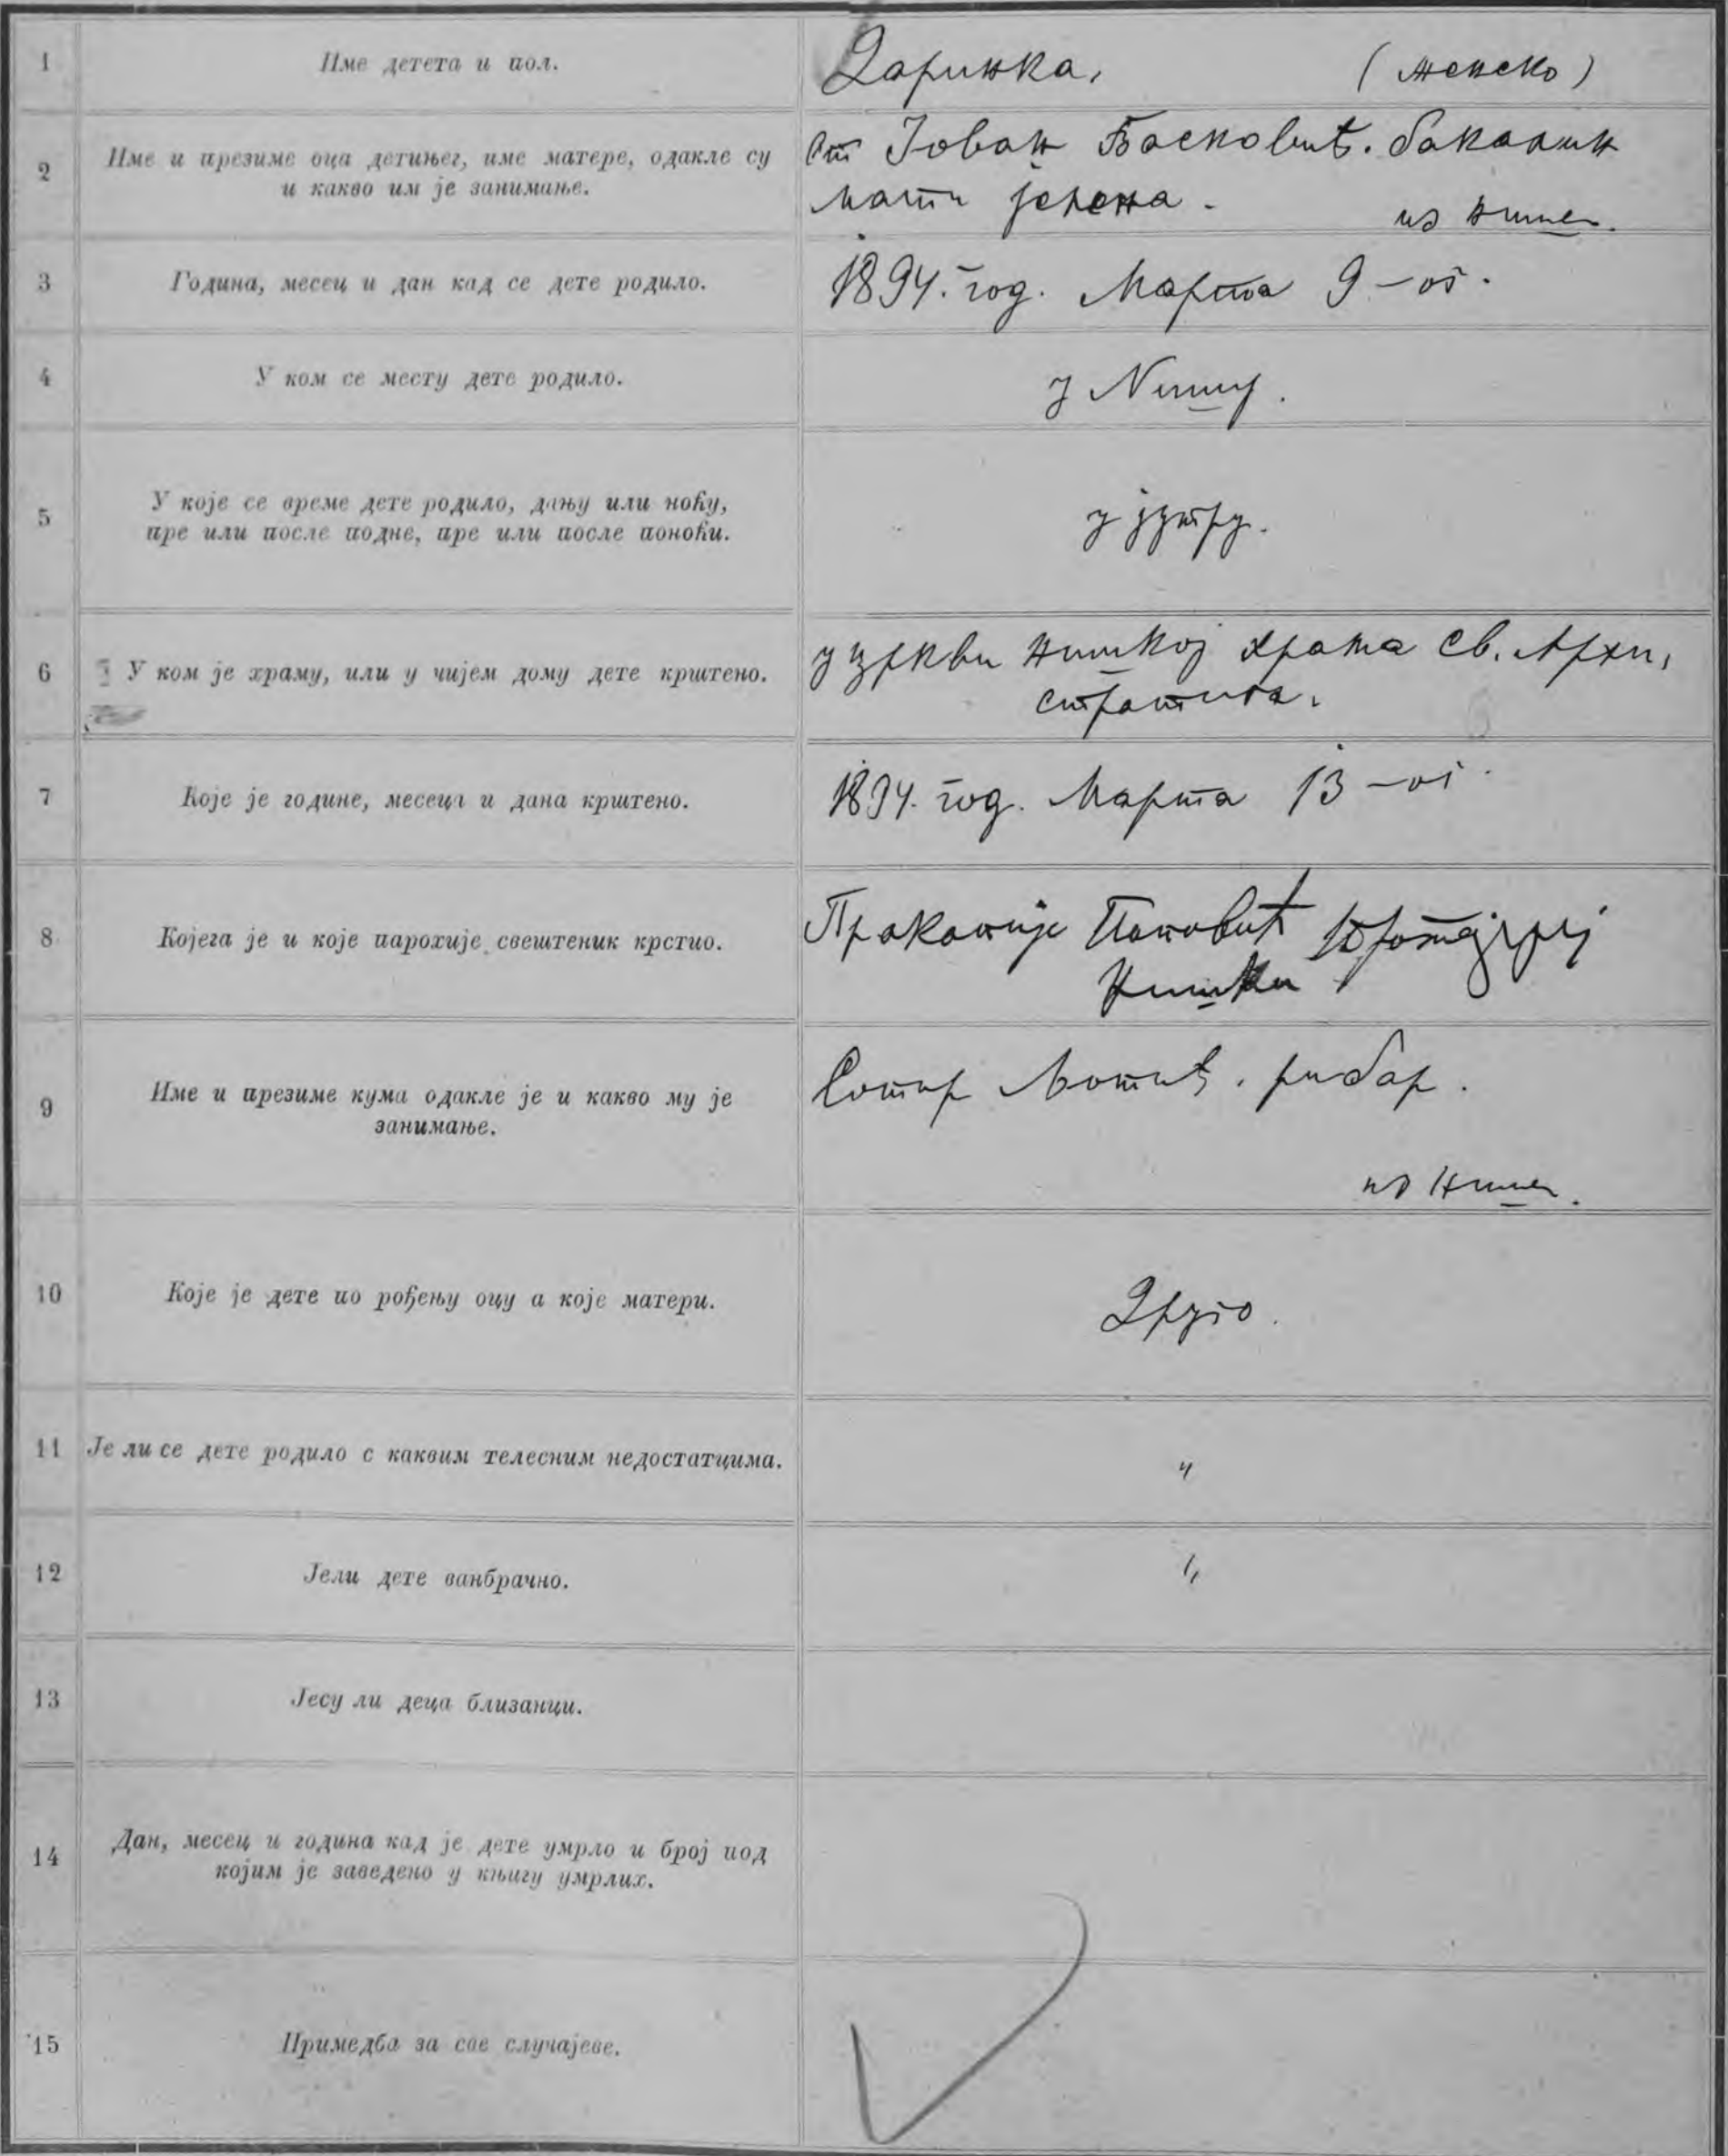 1
Име детета и пол.
Даринка, (женско)
2
Име и презиме оца детињег, име матере, одакле су
и какво им је занимање.
От Јован Басковић. бакалин
мати јелена. из Ниша.
3
Година, месец и дан кад се дете родило.
1894. год. Марта 9-ог.
4
У ком се месту дете родило.
у Nишу.
5
У које се време дете родило, дању или ноћу,
пре или после подне, пре или после поноћи.
у јутру.
6
У ком је храму, или у чијем дому дете крштено.
у цркви нишкој храма св. Архи,
стратига.
7
Које је године, месеца и дана крштено.
1894. год. Марта 13-ог.
8
Којега је и које парохије свештеник крстио.
Пракопије Поповић протојереј
Нишки
9
Име и презиме кума одакле је и какво му је
занимање.
Сотир рибар.
из Ниша.
10
Које је дете по рођењу оцу а које матери.
Друго.
11
Је ли се дете родило с каквим телесним недостатцима.
"
12
Јели дете ванбрачно.
"
13
Јесу ли деца близанци.
14
Дан, месец и година кад је дете умрло и број под
којим је заведено у књигу умрлих.
15
Примедба за све случајеве.